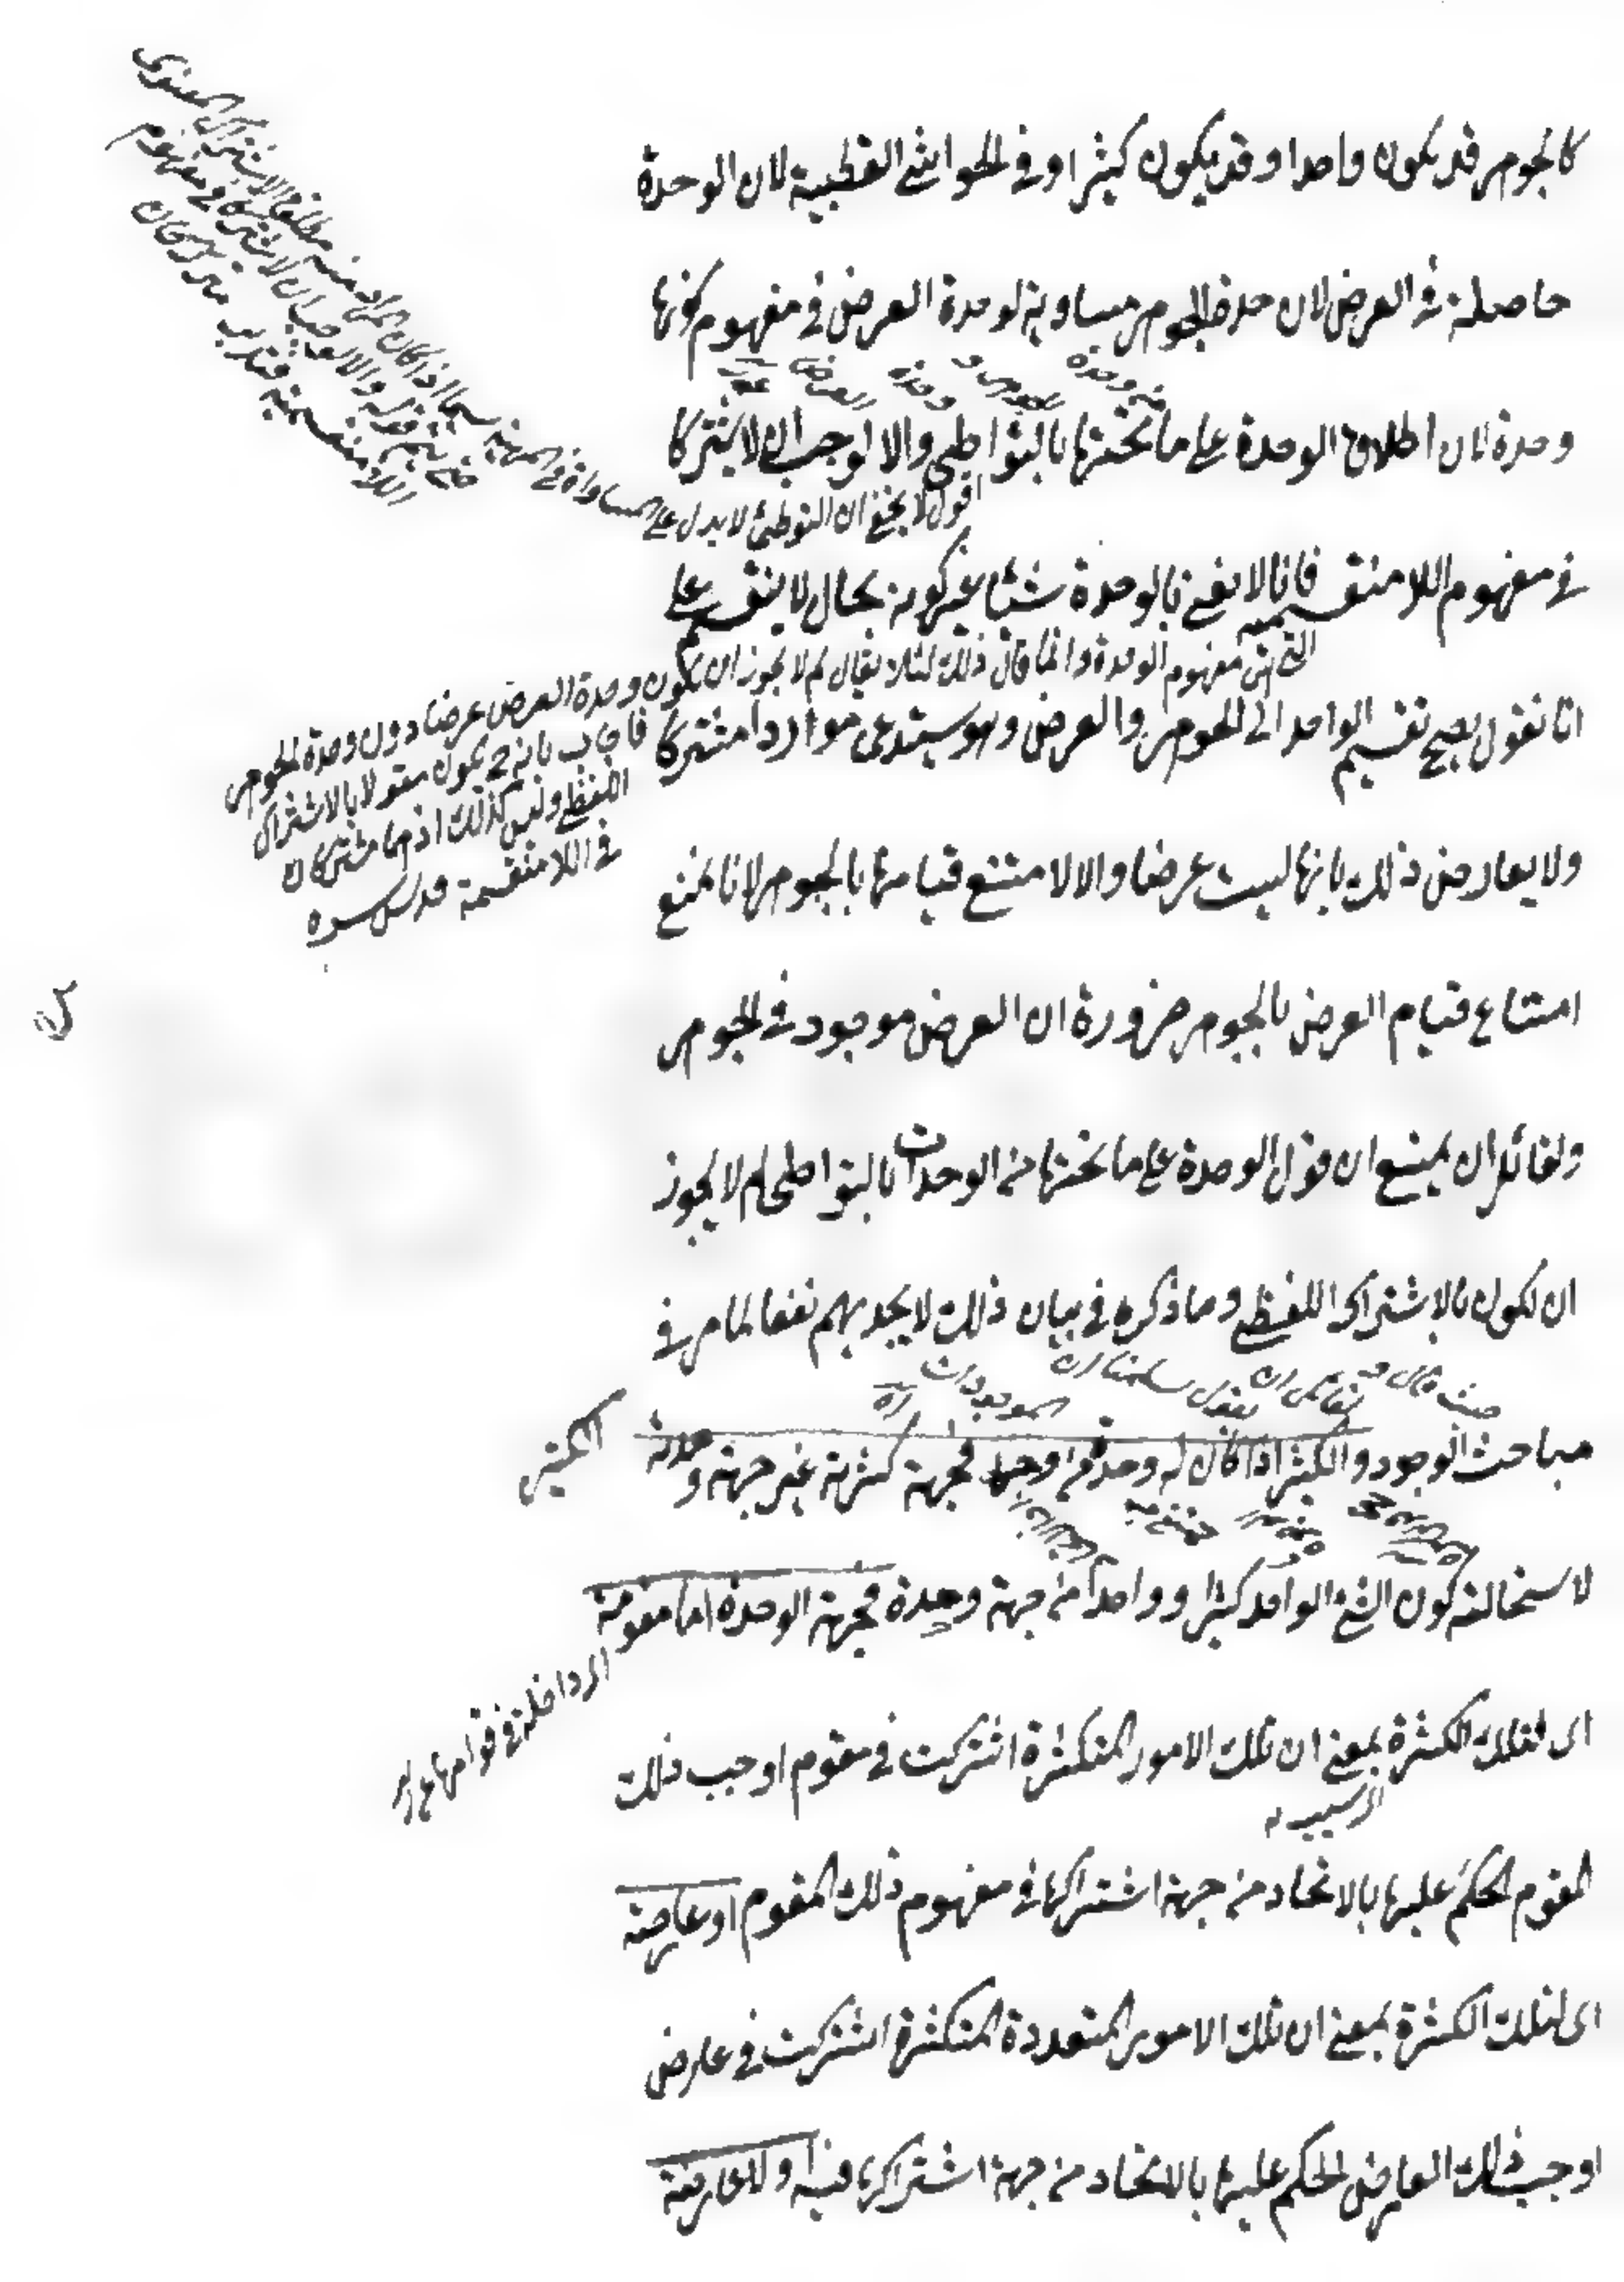 كالجوهر قد يكون واحدا وقد يكون كثيرا وفى الحواشى القطبية لان الوحدة
حاصلة فى العرض لان وحدة الجوهر مساوية لوحدة العرض فى مفهوم كونها
من وحدة الجوهر و وحدة العرض
وحدة لان اطلاق الوحدة على ما تحتها بالتواطى والا لوجب ان لا يشتركا
اقول لا يخفى ان التوطئ لا يدل على المساواة فى المهية سيما اذا كان المراد منه مطلق الاشتراك المعنوى
حتى يتم قوله والا لوجب ان لا يشتركا فى مفهوم
اللا منقسمية فتدبر ميرزاجان
فى مفهوم اللا منقسمية فانا لا نعنى بالوحدة شيئا غير كونه بحال لا ينقسم على
التى هى مفهوم الوحدة وانما قال ذلك لئلا يقال لم لا يجوز ان يكون وحدة العرض عرضا دون وحدة الجوهر
فاجاب بانه ح يكون مقولا بالاشتراك
اللفظى وليس كذلك اذ هما مشتركان
فى اللا منقسمة قدس سره
انا نقول يصح تقسيم الواحد الى الجوهر والعرض وهو يستدعى موردا مشتركا
ولا يعارض ذلك بانها ليست عرضا والا لامتنع قيامها بالجوهر لانا نمنع
امتناع قيام العرض بالجوهر ضرورة ان العرض موجود فى الجوهر
ولقائل ان يمنع ان قول الوحدة على ما تحتها من الوحدات بالتواطى لم لا يجوز
ان يكون بالاشتراك اللفظى وما ذكره فى بيان ذلك لا يجديهم نفعا لما مر فى
حيث قال و لقائل ان يقول سلمنا ان الموجودات
مباحث الوجود والكثير اذا كان له وحدة من وجه فجهة كثرته غير جهة وحدته
الكثير
لاستحالة كون الشئ الواحد كثيرا وواحدا من جهة واحدة فجهة الوحدة اما مقومة
اى داخلة فى قوامها
اى لتلك الكثرة بمعنى ان تلك الامور المتكثرة اشتركت فى مقوم اوجب ذلك
اى بسببه
المقوم الحكم عليها بالاتحاد من جهة اشتراكها فى مفهوم ذلك المقوم او عارضة
اى لتلك الكثرة بمعنى ان تلك الامور المتعددة المتكثرة اشتركت فى عارض
اوجب ذلك العارض الحكم عليها بالاتحاد من جهة اشتراكها فيه او لا عارضة